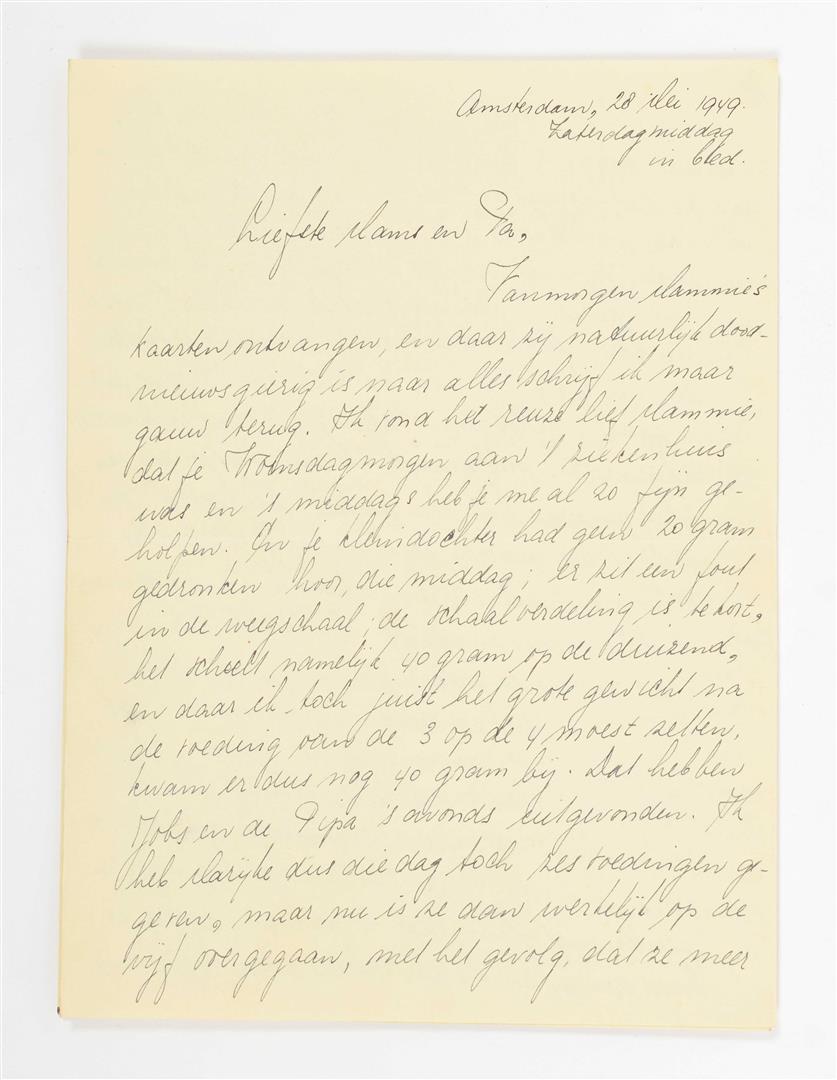 Amsterdam, 28 Mei 1949.
Zaterdagmiddag
in bed.
Liefste Mams en Pa,
Vanmorgen Mammie's
kaarten ontvangen, en daar zij natuurlijk dood-
nieuwsgierig is naar alles schrijf ik maar
gauw terug. Ik vond het reuze lief Mammie,
dat je Woensdagmorgen aan 't ziekenhuis
was en 's middags heb je me al zo fijn ge-
holpen. En je kleindochter had geen 20 gram
gedronken hoor, die middag; er zit een fout
in de weegschaal; de schaalverdeling is te kort,
het scheelt namelijk 40 gram op de duizend,
en daar ik toch juist het grote gewicht na
de voeding van de 3 op de 4 moest zetten,
kwam er dus nog 40 gram bij. Dat hebben
Jobs en de Pipa 's avonds uitgevonden. Ik
heb Marijke dus die dag toch zes voedingen ge-
geven, maar nu is ze dan werkelijk op de
vijf overgegaan, met het gevolg, dat ze meer